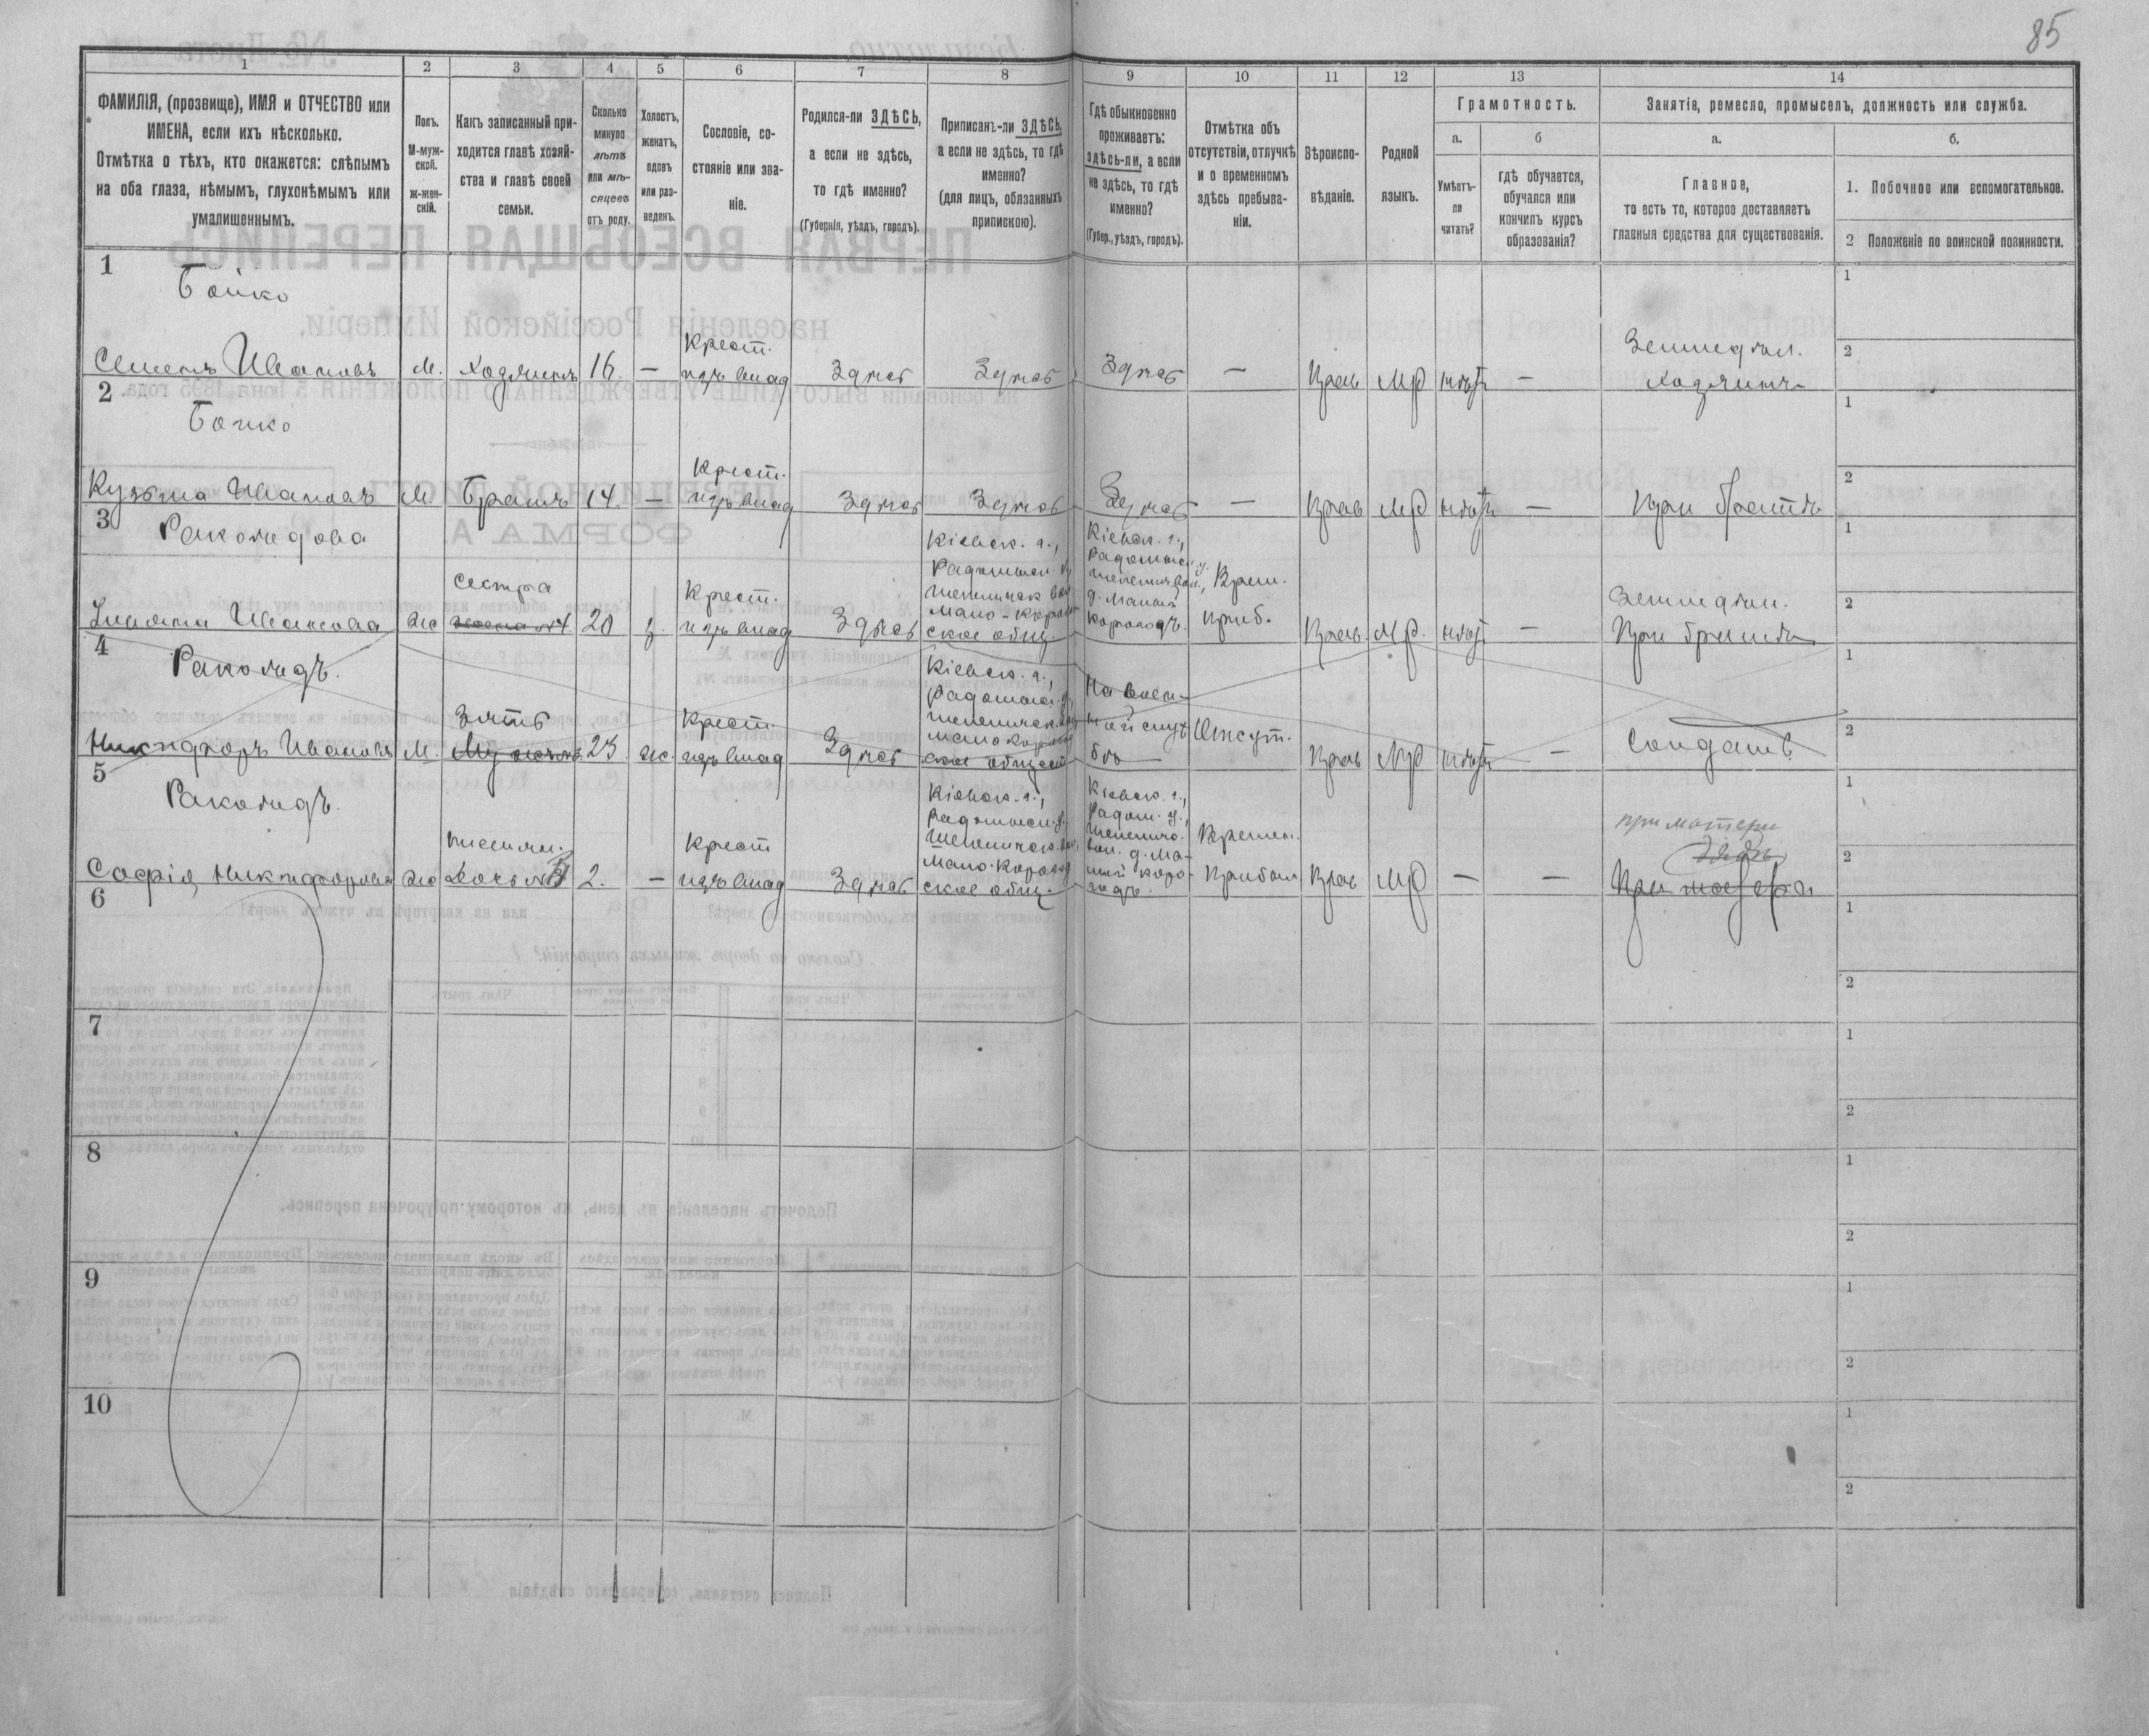 85
1
2
3
4
5
6
7
8
9
10
11
12
13
14
ФАМИЛІЯ, (прозвище), ИМЯ и ОТЧЕСТВО или
ИМЕНА, если ихъ нѣсколько.
Отмѣтка о тѣхъ, кто окажется: слѣпымъ
на оба глаза, нѣмымъ, глухонѣмымъ или
умалишеннымъ.
Полъ.
М-муж-
ской.
ж-жен-
скій.
Какъ записанный при-
ходится главѣ хозяй-
ства и главѣ своей
семьи.
Сколько
минуло
лѣтъ
или мѣ-
сяцевъ
отъ роду.
Холостъ,
женатъ,
вдовъ
или раз-
веденъ.
Сословіе, со-
стояніе или зва-
ніе.
Родился-ли ЗДѢСЬ,
а если не здѣсь,
то гдѣ именно?
(Губернія, уѣздъ, городъ).
Приписанъ-ли ЗДѢСЬ,
а если не здѣсь, то гдѣ
именно?
(для лицъ, обязанныхъ
припискою).
Гдѣ обыкновенно
проживаетъ:
здѣсь-ли, а если
не здѣсь, то гдѣ
именно?
(Губер., уѣздъ, городъ).
Отмѣтка объ
отсутствіи, отлучкѣ
и о временномъ
здѣсь пребыва-
ніи.
Вѣроиспо-
вѣданіе.
Родной
языкъ.
Грамотность.
а.
б
Умѣетъ-
ли
читать?
гдѣ обучается,
обучался или
кончилъ курсъ
образованія?
Занятіе, ремесло, промыселъ, должность или служба.
а.
б.
Главное,
то есть то, которое доставляетъ
главныя средства для существованія.
1. Побочное или вспомогательное.
2 Положеніе по воинской повинности.
1
Бойко
Семенъ Ивановъ
М.
Хозяинъ
16.
—
Крест.
изъ влад
Здѣсь
Здѣсь
Здѣсь
—
Прав
Мр
нѣтъ
—
Земледѣл.
хозяинъ
1
2
2
Бойко
Кузьма Ивановъ
М
Братъ
14.
—
Крест.
изъ влад
Здѣсь
Здѣсь
Здѣсь
—
Прав
Мр
нѣтъ
—
При братѣ
1
2
3
Ивановa
Же
сестра
20
з.
Крест.
изъ влад
Здѣсь
Кіевск. г.,
Радомысл. у
Шепелич вол
Мало-Корогод
ское общ.
Кіевск. г.,
Радомысл. у.
Шепелич вол.,
д. Малый
Корогодъ.
Врем.
приб.
Прав.
Мр.
нѣтъ
—
Земледѣл.
При братѣ
1
2
4
Никифоръ Ивановъ
М.
Зять
23
ж.
Крест.
изъ влад
Здѣсь
Кіевск. г.,
Радомысл. у,
Шепеличск. вол
Мало Корогод
ское общест
На воен-
ной служ
бѣ
Отсут.
Прав
Мр
нѣтъ
—
Солдатъ
1
2
5
Софія Никифорова
Же
племян.
Дочь
2.
—
Крест
изъ влад
Здѣсь
Кіевск. г.,
Радомысл. у.
Шепеличск. вол,
Мало-Корогод
ское общ.
Кіевск. г.,
Радом. у.,
Шепелич.
вол. д. Ма-
лый Коро-
годъ.
Времен.
Прибыл
Прав
Мр
—
—
при матери
При матери
1
2
6
1
2
7
1
2
8
1
2
9
1
2
10
1
2